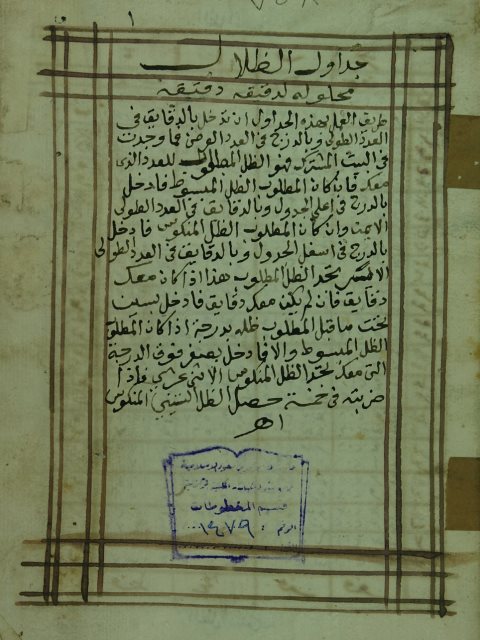 جداول الظلال
محلوله لدقيقه دقيقه
طريق العمل بهذه الجداول ان تدخل بالدقايق في
العدد الطولي وبالدرج في العدد العرضي فما وجدت
في البيت المشترك فهو الظل المطلوب للعدد الذي
معك فان كان المطلوب الظل المبسوط فادخل
بالدرج في اعلي الجدول وبالدقايق في العدد الطولي
الايمن وان كان المطلوب الظل المنكوس فادخل
بالدرج في اسفل الجدول وبالدقايق في العدد الطولي
الايسر تجد الظل المطلوب هذا اذا كان معك
دقايق فان لم يكن معك دقايق فادخل بستين
تحت ما قبل المطلوب ظله بدرجة اذا كان المطلوب
الظل المبسوط والا فادخل بصفر فوق الدرجة
التي معك تجد الظل المنكوس الاثني عشري فاذا
ضربته في خمسة حصل الظل الستيني المنكوس
اهـ
قسم المخطوطات
الرقم : ١٤٧٩